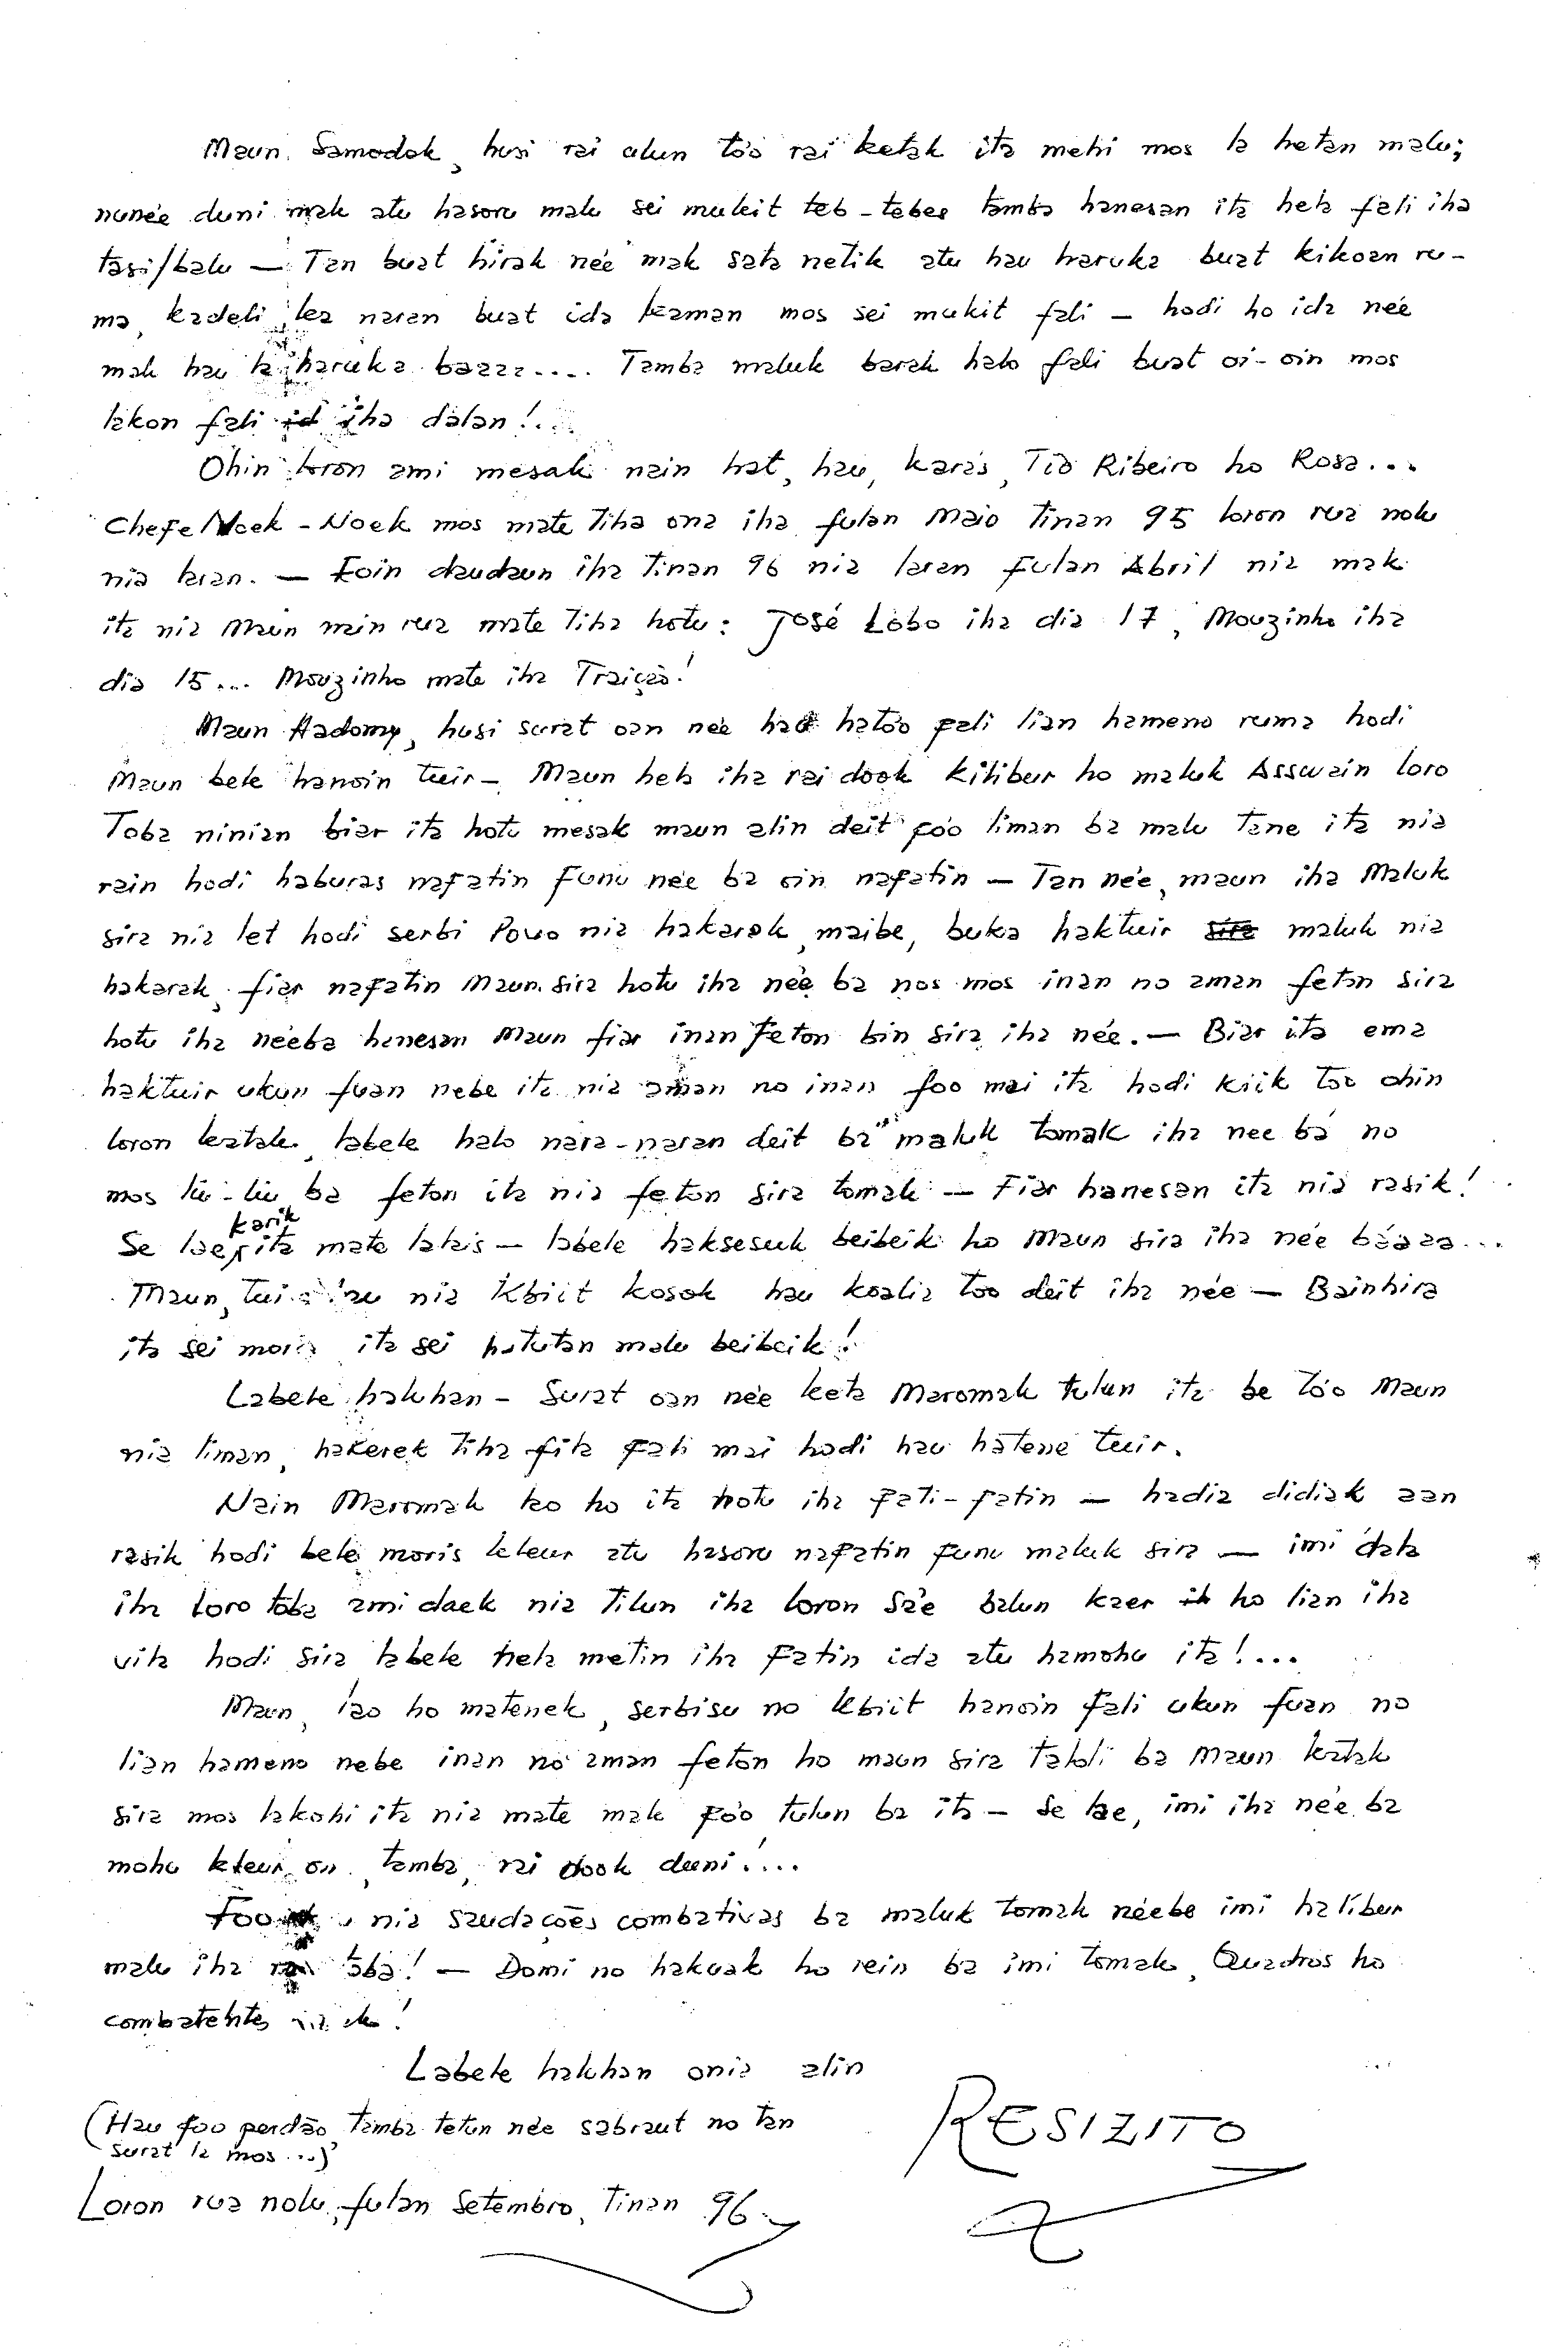 Maun Samodok, husi rai ulun tó'o rai ketak ita mehi mos la hetan malu;
nunée duni mak atu hasoru malu sei mukit teb-tebes tamba hanesan ita hela fali iha
tasi/balu — Tan buat hirak née mak sata netik atu hau haruka buat kikoan ru-
ma, kadeli lea naran buat ida kaman mos sei mukit fali — hodi ho ida née
mak hau la haruka baaaa.... Tamba maluk barak halo fali buat oi-oin mos
lakon fali iha dalan!...
Ohin loron ami mesak nain hat, hau, Karas, Tio Ribeiro ho Rosa...
Chefe Noek-Noek mos mate tiha ona iha fulan Maio tinan 95 loron rua nolu
nia laran. — Foin daudaun iha tinan 96 nia laran fulan Abril nia mak
ita nia Maun nain rua mate tiha hotu: José Lobo iha dia 17, Mouzinho iha
dia 15... Mouzinho mate iha Traição!
Maun Hadomy, husi surat oan née hau ható'o fali lian hameno ruma hodi
Maun bele hanoin tuir — Maun hela iha rai dook kilibur ho maluk Asswain loro
Toba ninian biar ita hotu mesak maun alin deit fó'o liman ba malu tane ita nia
rain hodi haburas nafatin funu née ba oin nafatin — Tan née, maun iha Maluk
sira nia let hodi serbi Povo nia hakarak, maibe, buka haktuir maluk nia
hakarak, fiar nafatin Maun sira hotu iha née ba nos mos inan no aman feton sira
hotu iha néeba hanesan Maun fiar inan feton bin sira iha née. — Biar ita ema
haktuir ukun fuan nebe ita nia aman no inan foo mai ita hodi kiik too ohin
loron katak, labele halo nara-naran deit ba maluk tomak iha nee ba no
mos liu-liu ba feton ita nia feton sira tomak — Fiar hanesan ita nia rasik!
Se lae karik ita mate lalais — labele haksesuk beibeik ho Maun sira iha née báaaa...
Maun, tuir hau nia Kbiit kosok hau koalia too deit iha née — Bainhira
ita sei moris ita sei hatutan malu beibeik!
Labele haluhan — Surat oan née keta Maromak tulun ita be tó'o Maun
nia liman, hakerek tiha fila fali mai hodi hau hatene tuir.
Nain Maromak lao ho ita hotu iha fati-fatin — hadia didiak aan
rasik hodi bele moris kleur atu hasoru nafatin funu maluk sira — imi data
iha loro toba ami daek nia tilun iha loron sáe balun kaer ho lian iha
vila hodi sira labele hela metin iha fatin ida atu hamohu ita!...
Maun, lao ho matenek, serbisu no kbiit hanoin fali ukun fuan no
lian hameno nebe inan no aman feton ho maun sira taloli ba Maun katak
sira mos lakohi ita nia mate mak fó'o tulun ba ita — Se lae, imi iha née ba
mohu kleur on, tamba, rai dook duni!....
Foo nia saudações combativas ba maluk tomak néebe imi halibur
malu iha toba! — Domi no hakuak ho rein ba imi tomak, Quadros ho
combatentes!
Labele haluhan onia alin
(Hau foo perdão tamba tetun née sabraut no tan
surat la mos...)
RESIZITO
Loron rua nolu, fulan Setembro, Tinan 96